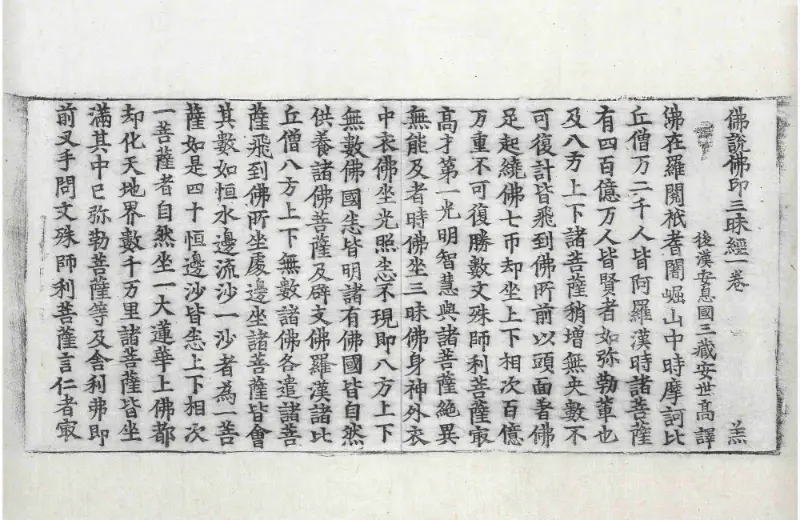 佛說佛印三昧經一卷 羔
後漢安息國三藏安世髙譯
佛在羅閱祇耆闍崛山中時摩訶比
丘僧万二千人皆阿羅漢時諸菩薩
有四百億万人皆賢者如弥勒軰也
及八方上下諸菩薩稍增無央數不
可復計皆飛到佛所前以頭面著佛
足起繞佛七帀却坐上下相次百億
万重不可復勝數文殊師利菩薩㝡
髙才第一光明智慧與諸菩薩絶異
無能及者時佛坐三昧佛身神外衣
中衣佛坐光照悉不現即八方上下
無數佛國悉皆明諸有佛國皆自然
供養諸佛菩薩及辟支佛羅漢諸比
丘僧八方上下無數諸佛各遣諸菩
薩飛到佛所坐處邊坐諸菩薩皆會
其數如恒水邊流沙一沙者為一菩
薩如是四十恒邊沙皆悉上下相次
一菩薩者自然坐一大蓮華上佛都
却化天地界數千万里諸菩薩皆坐
滿其中已弥勒菩薩等及舍利弗即
前叉手問文殊師利菩薩言仁者㝡